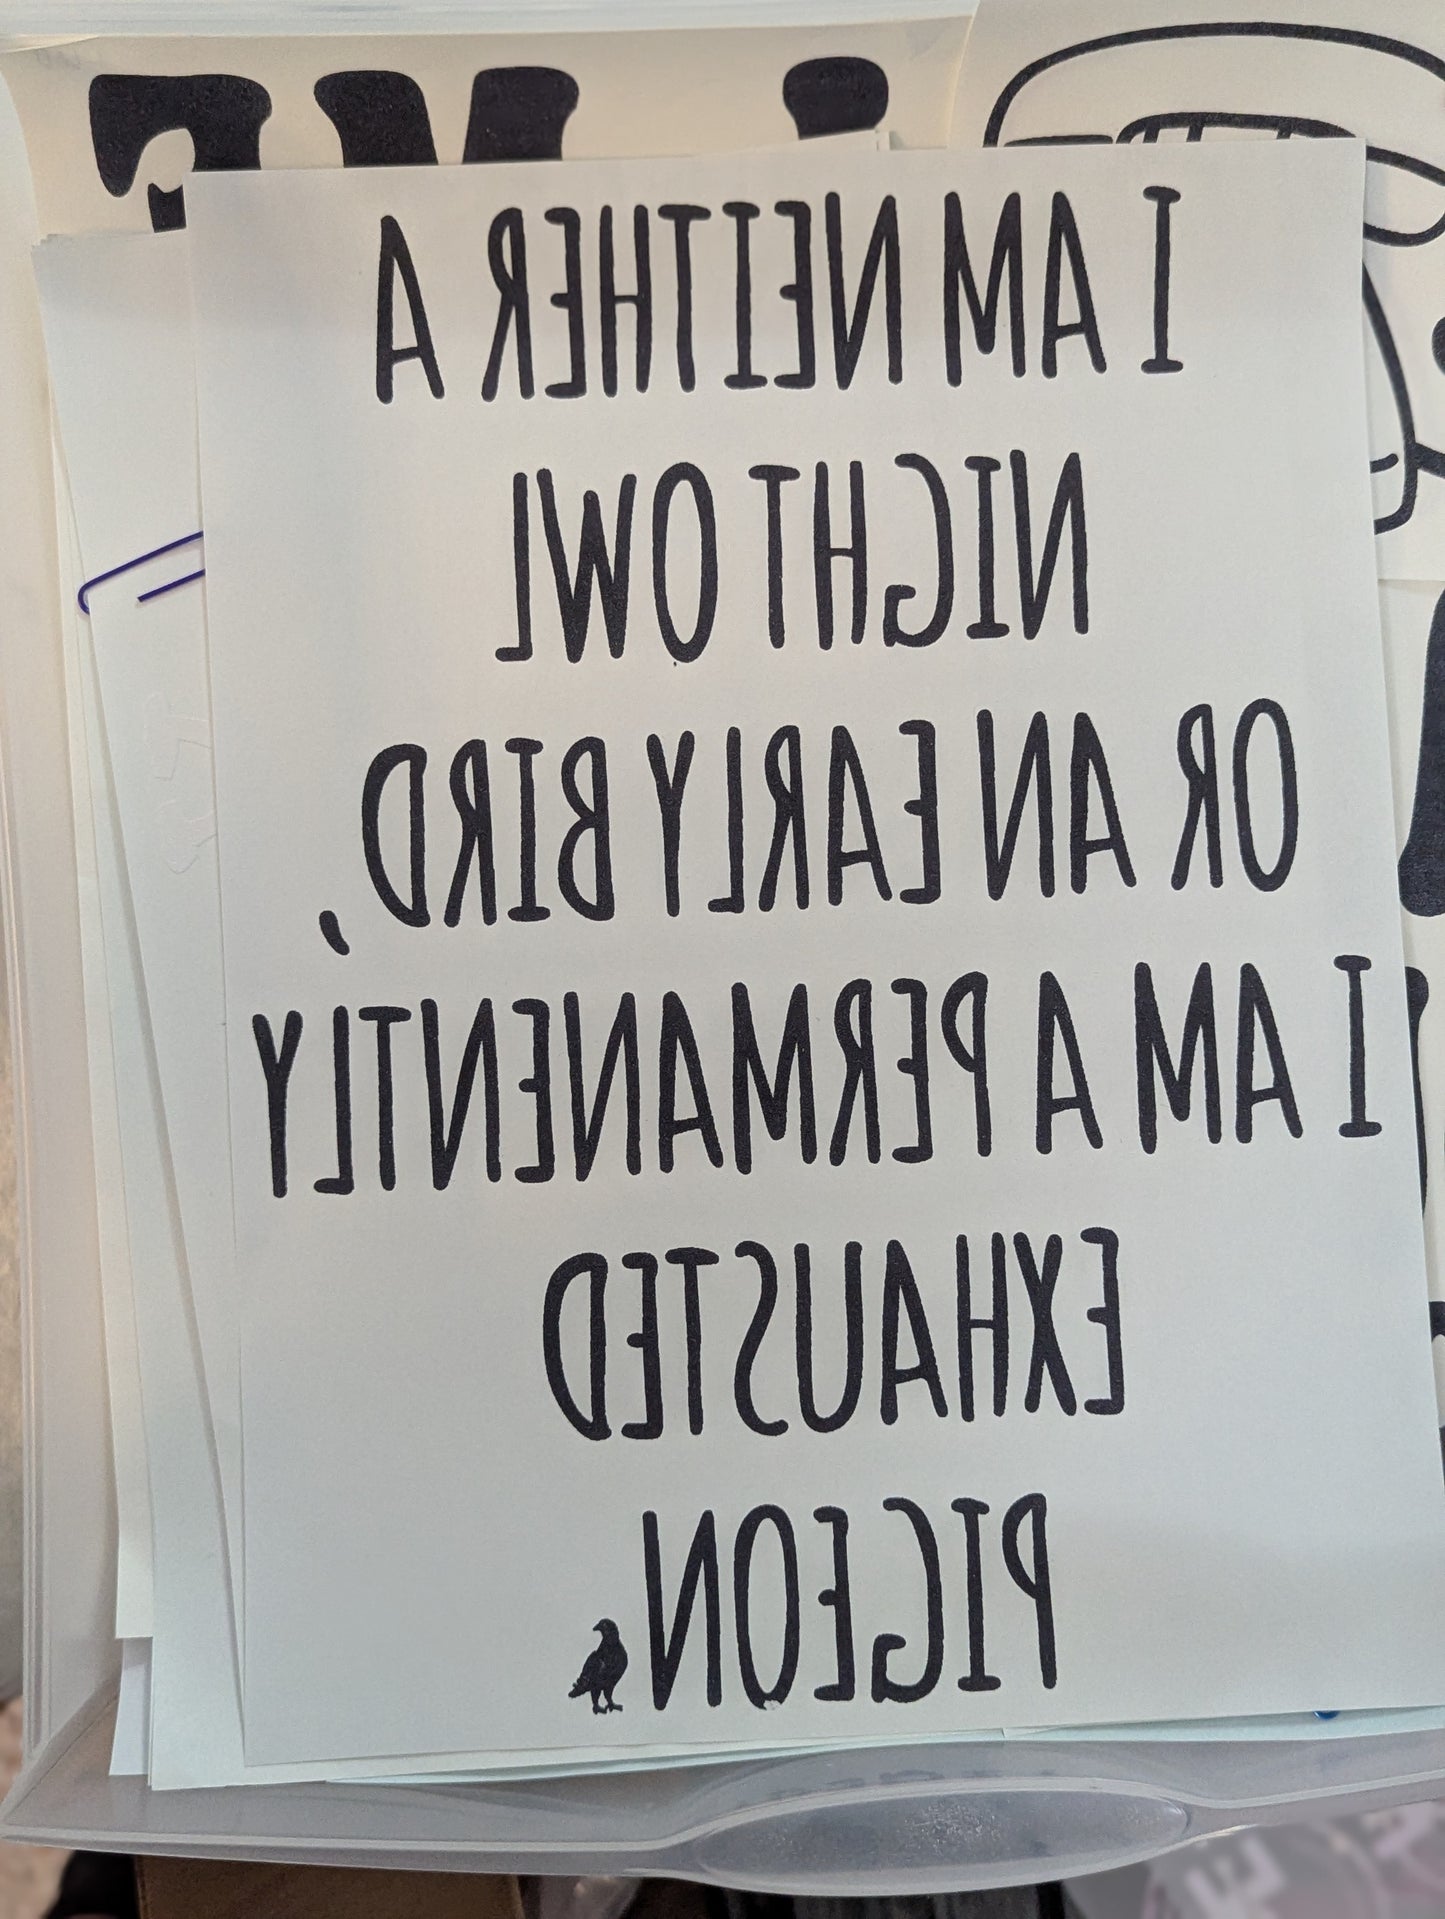 I AM NEITHER A
NIGHT OWL
OR AN EARLY BIRD,
I AM A PERMANENTLY
EXHAUSTED
PIGEON